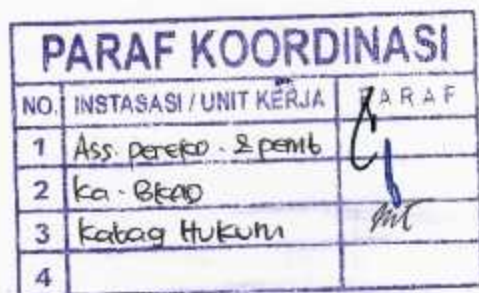 PARAF KOORDINASI
NO. INSTASASI / UNIT KERJA PARAF
1 Ass. pereko. & pemb
2 ka. BKAD
3 Kabag Hukum
4